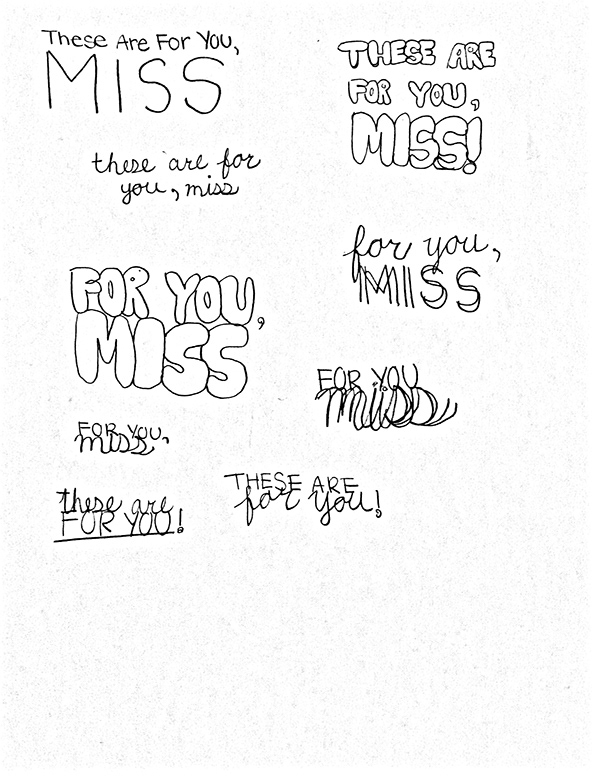 These Are For You,
MISS
THESE ARE
FOR YOU,
MISS!
these are for
you, miss
for you,
MISS
FOR YOU,
MISS
FOR YOU
miss
FOR YOU,
miss.
these are
FOR YOU!
THESE ARE
for you!